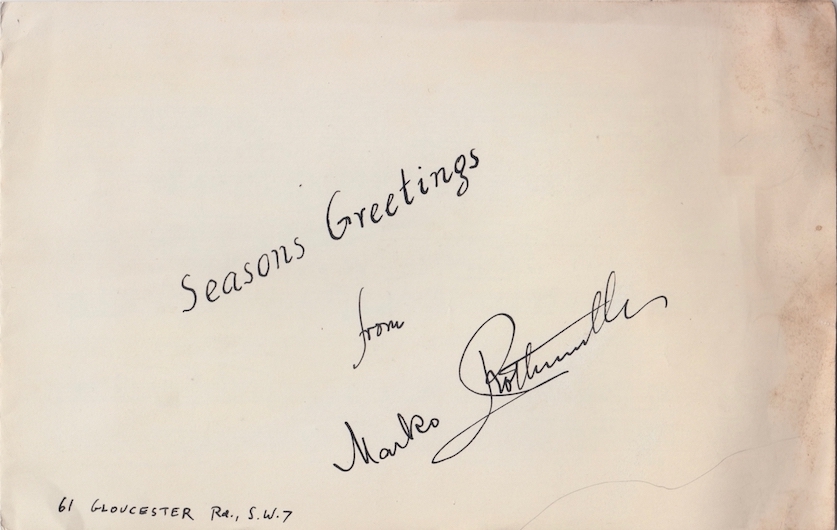 Seasons Greetings
from
Marko Rothmüller
61 GLOUCESTER Rd., S.W.7